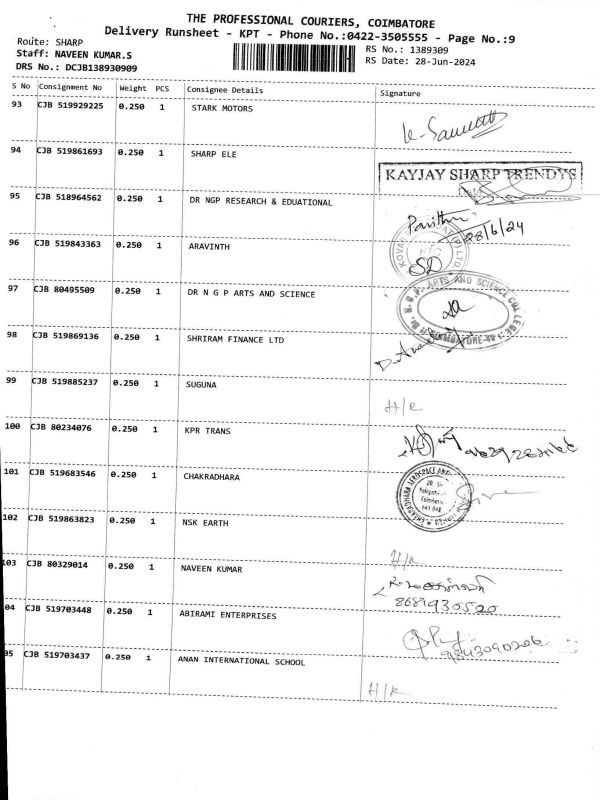 THE PROFESSIONAL COURIERS, COIMBATORE
Delivery Runsheet - KPT - Phone No.:0422-3505555 - Page No.:9
Route: SHARP
Staff: NAVEEN KUMAR.S
DRS No.: DCJB138930909
RS No.: 1389309
RS Date: 28-Jun-2024
S No Consignment No Weight PCS Consignee Details Signature
93 CJB 519929225 0.250 1 STARK MOTORS
94 CJB 519861693 0.250 1 SHARP ELE
KAYJAY SHARP TRENDYS
95 CJB 518964562 0.250 1 DR NGP RESEARCH & EDUATIONAL
28/6/24
96 CJB 519843363 0.250 1 ARAVINTH
SD
97 CJB 80495509 0.250 1 DR N G P ARTS AND SCIENCE
ARTS AND SCIENCE COLLEGE
98 CJB 519869136 0.250 1 SHRIRAM FINANCE LTD
99 CJB 519885237 0.250 1 SUGUNA
H/R
100 CJB 80234076 0.250 1 KPR TRANS
101 CJB 519683546 0.250 1 CHAKRADHARA
CHAKRADHARA AEROSPACE AND
102 CJB 519863823 0.250 1 NSK EARTH
H/R
103 CJB 80329014 0.250 1 NAVEEN KUMAR
8681930520
04 CJB 519703448 0.250 1 ABIRAMI ENTERPRISES
9843090206
05 CJB 519703437 0.250 1 ANAN INTERNATIONAL SCHOOL
H/R